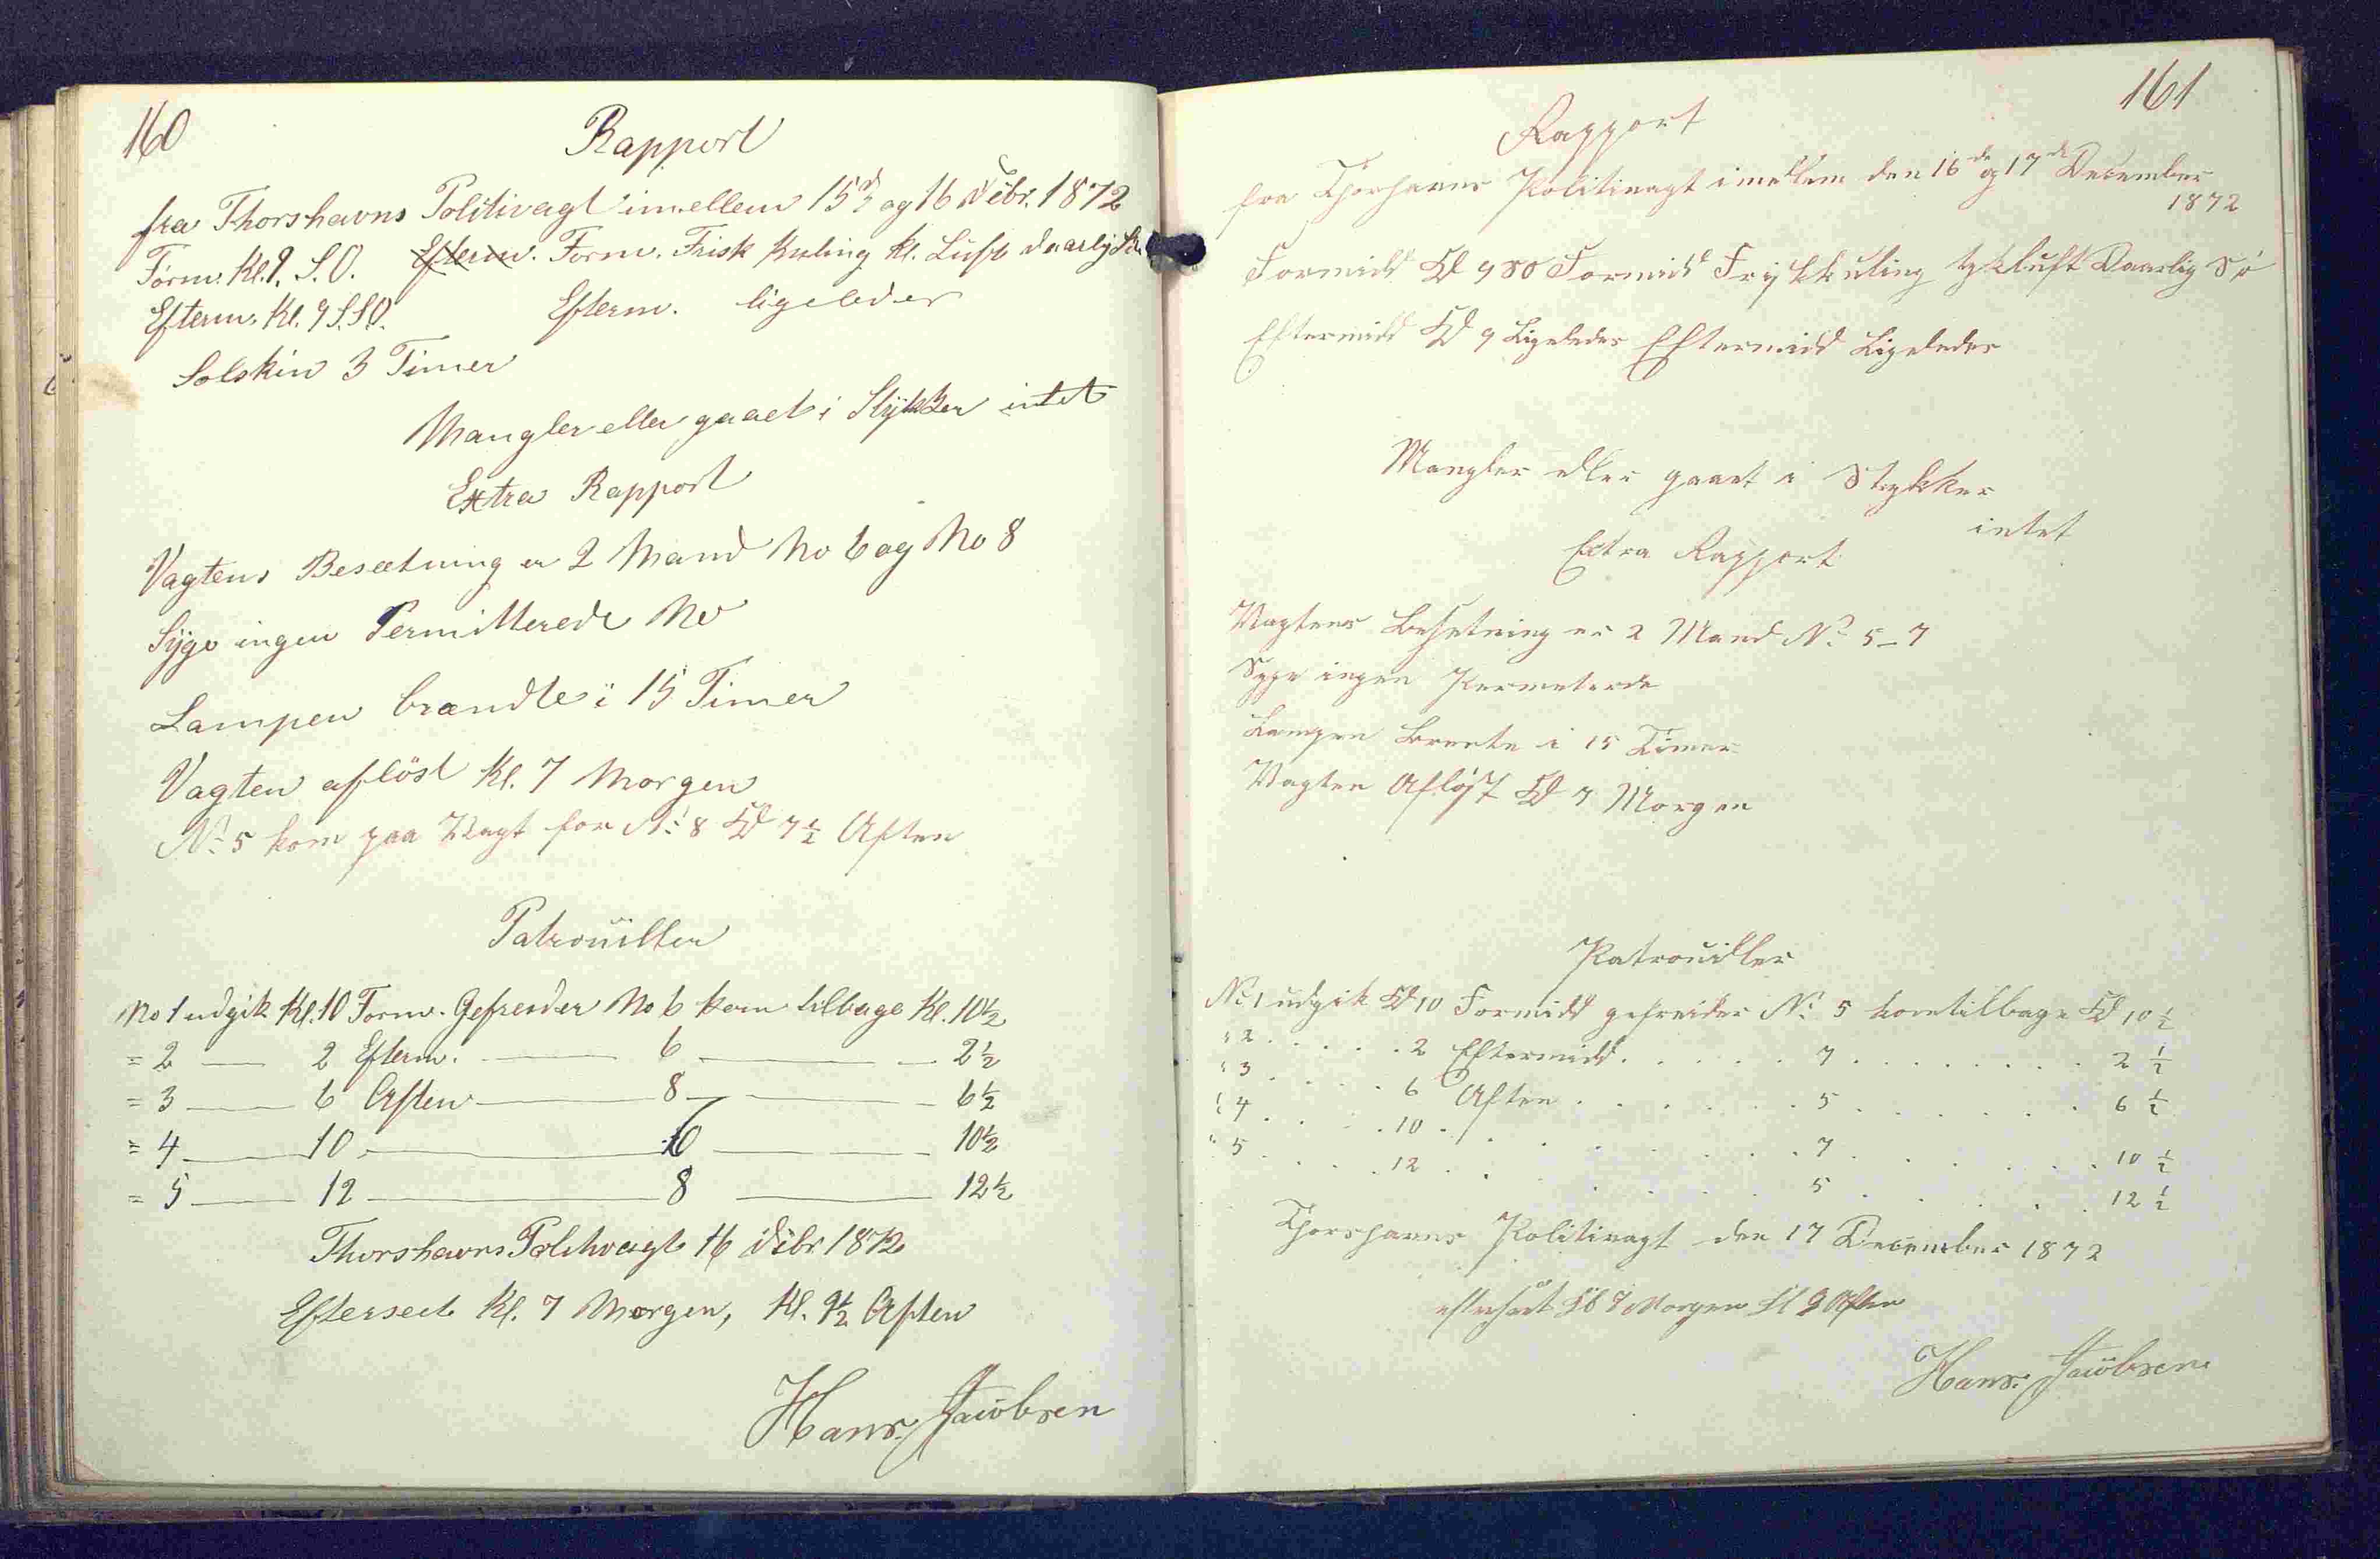 160
Rapport
fra Thorshavns Politivagt imellem 15d og 16 Dcbr. 1872
Form. Kl. 9. S.O. Efterm. Form. Frisk Kuling Kl. Luft daarlig
Efterm. Kl. 9 S.S.O. Efterm. ligeledes
Solskin 3 Timer
Mangler eller gaaet i Stykker intet
Extra Rapport
Vagtens Besætning er 2 Mand No 6 og No 8
Syge ingen Permitterede No
Lampen brændte i 15 Timer
Vagten aflöst Kl. 7 Morgen
No 5 kom paa Vagt for No 8 Kl 7½ Aften
Patrouiller
No 1 udgik Kl. 10 Form. Gefreider No 6 kom tilbage Kl. 10½
" 2 — 2 Efterm. — 6 — 2½
" 3 — 6 Aften — 8 — 6½
" 4 — 10 — 6 — 10½
" 5 — 12 — 8 — 12½
Thorshavns Politivagt 16 Dcbr 1872
Efterseet Kl. 7 Morgen, Kl. 9½ Aften
Hans Jacobsen
161
Rapport
fra Thorshavns Politivagt imellem den 16de og 17de December
1872
Formidd Kl 9 SO Formidd Frisk kuling tykluft Daarlig Sö
Eftermidd Kl 9 Ligeledes Eftermidd Ligeledes
Mangler eller gaaet i Stykker
intet
Extra Rapport
Vagtens Besetning er 2 Mand No 5 – 7
Syge ingen Permeterde
Lampen Brente i 15 Timer
Vagten Aflöst Kl 7 Morgen
Patrouiller
No 1 udgik Kl 10 Formidd gefreider No 5 kom tilbage Kl 10 ½
" 2 . . . . . 2 Eftermidd . . . . . 7 . . . . . . . . 2 ½
" 3 . . . . 6 Aften . . . . . . 5 . . . . . . 6 ½
" 4 . . . . 10 . . . . . . . 7 . . . . . . 10 ½
" 5 . . . . 12 . . . . . . . 5 . . . . . 12 ½
Thorshavns Politivagt den 17 December 1872
efterseet Kl 7 Morgen Kl 9 Aften
Hans Jacobsen